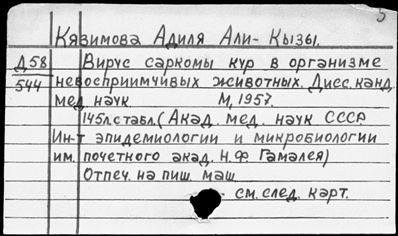 5
Кязимова Адиля Али-Кызы.
Д58 Вирус саркомы кур в организме
544 невосприимчивых животных. Дисс. канд.
мед. наук М, 1957.
145л. с табл. (Акад. мед. наук СССР.
Ин-т эпидемиологии и микробиологии
им. почетного акад. Н.Ф. Гамалея)
Отпеч. на пиш. маш.
- см. след. карт.